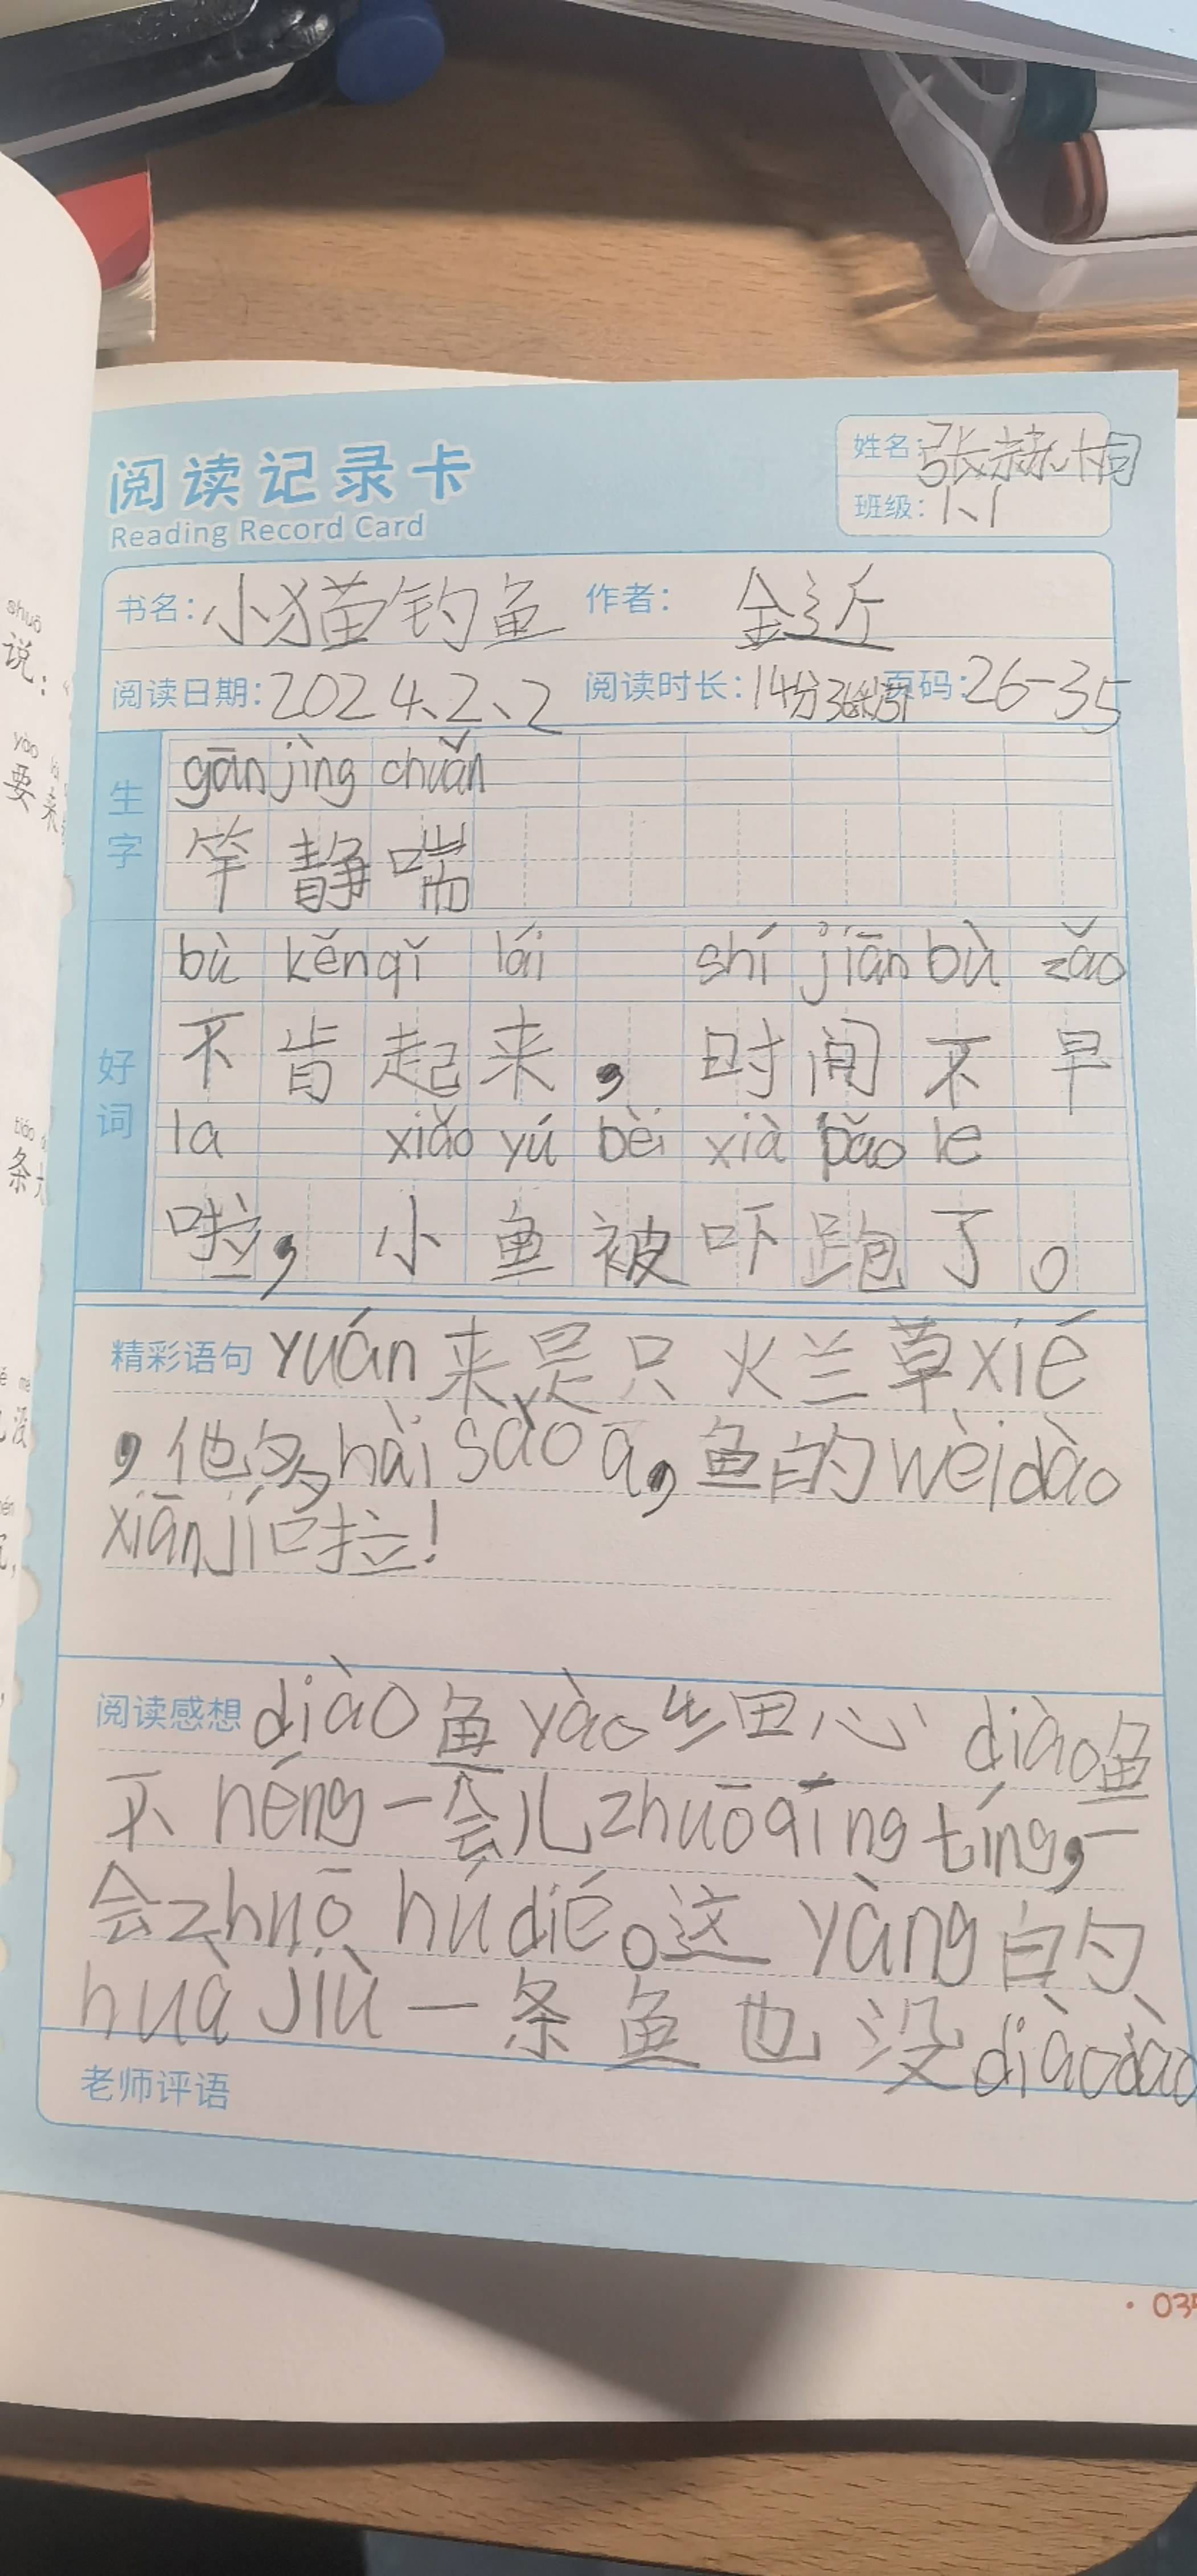 阅读记录卡
Reading Record Card
姓名：张赫桐
班级：1、1
书名：小猫钓鱼 作者：金近
阅读日期：2024、2、2 阅读时长：14分36秒 页码：26-35
生字
gān jìng chuǎn
竿 静 喘
好词
bù kěn qǐ lái shí jiān bù zǎo
不肯起来，时间不早
la xiǎo yú bèi xià pǎo le
啦，小鱼被吓跑了。
精彩语句 yuán来是只火兰草xié
，他多hài sào a，鱼的wèi dào
xiān jí啦！
阅读感想 diào鱼yào细心 diào鱼
不néng一会儿zhuō qīng tíng，一
会zhuō hú dié。这yàng的
huà jiù一条鱼也没diào dào
老师评语
shuō
说：
yào
要来
tiáo
条
没